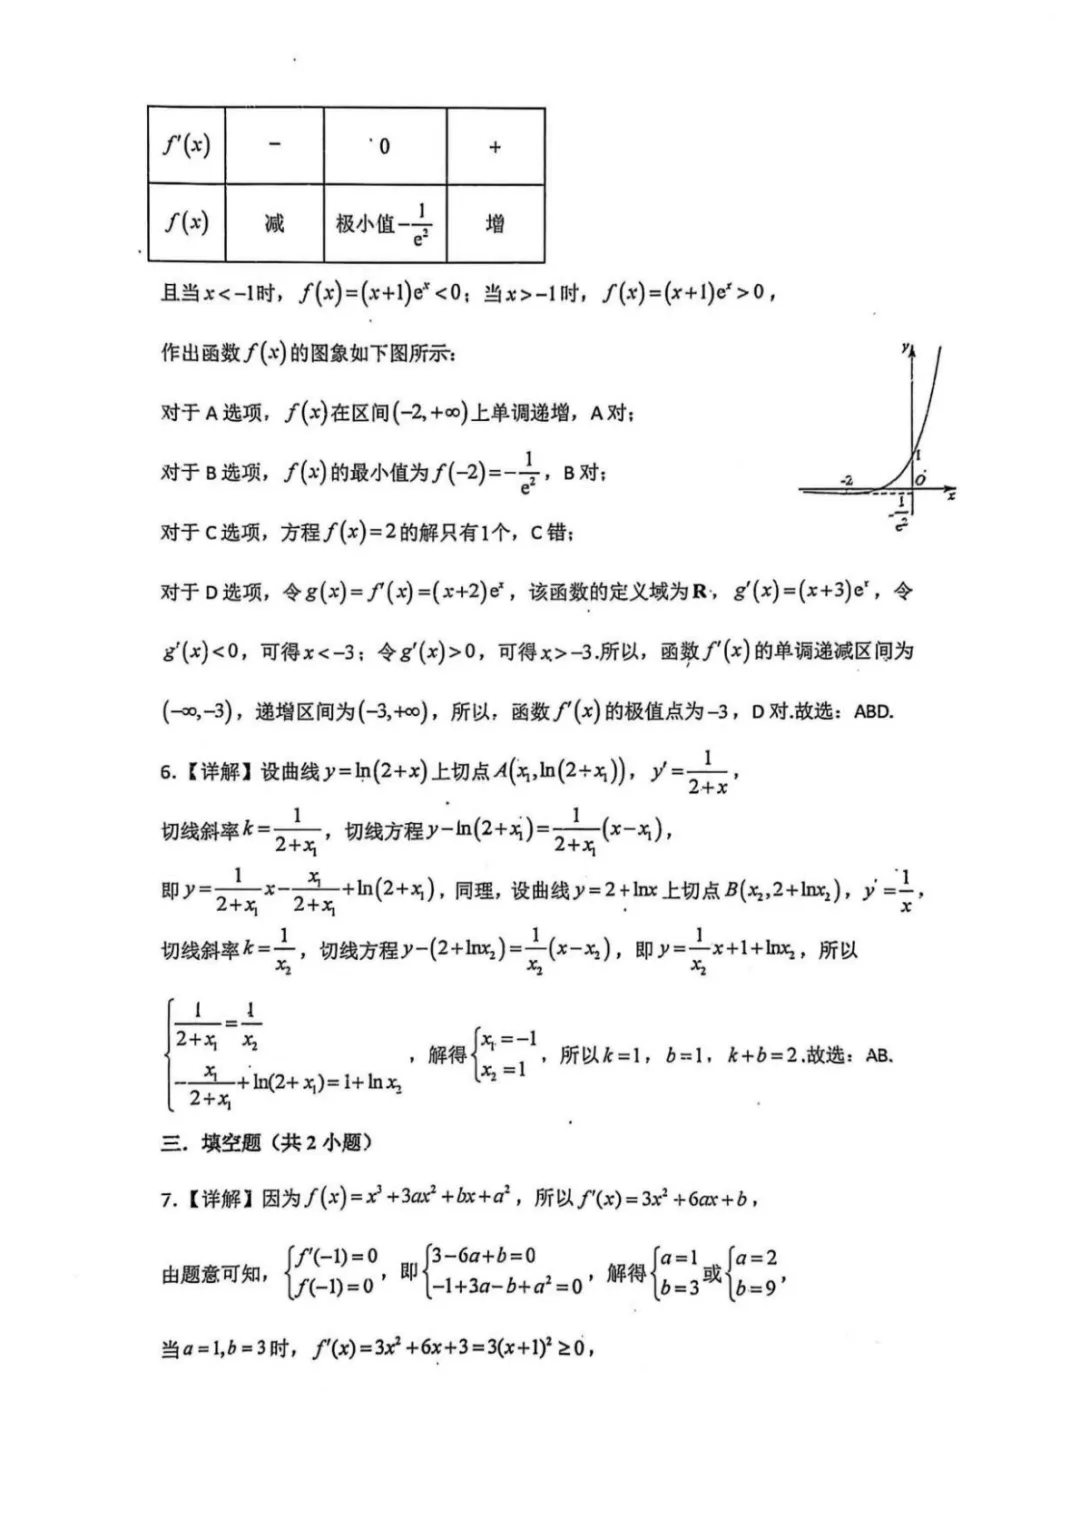 f′(x) − 0 +
f(x) 减 极小值 −1/e² 增
且当x<−1时，f(x)=(x+1)eˣ<0；当x>−1时，f(x)=(x+1)eˣ>0，
作出函数f(x)的图象如下图所示：
y
1
-2
O
x
−1/e²
对于 A 选项，f(x)在区间(−2,+∞)上单调递增，A 对；
对于 B 选项，f(x)的最小值为f(−2)=−1/e²，B 对；
对于 C 选项，方程f(x)=2的解只有1个，C 错；
对于 D 选项，令g(x)=f′(x)=(x+2)eˣ，该函数的定义域为R，g′(x)=(x+3)eˣ，令
g′(x)<0，可得x<−3；令g′(x)>0，可得x>−3.所以，函数f′(x)的单调递减区间为
(−∞,−3)，递增区间为(−3,+∞)，所以，函数f′(x)的极值点为−3，D 对.故选：ABD.
6.【详解】设曲线y=ln(2+x)上切点A(x₁,ln(2+x₁))，y′=1/(2+x)，
切线斜率k=1/(2+x₁)，切线方程y−ln(2+x₁)=1/(2+x₁)(x−x₁)，
即y=1/(2+x₁)x−x₁/(2+x₁)+ln(2+x₁)，同理，设曲线y=2+lnx上切点B(x₂,2+lnx₂)，y′=1/x，
切线斜率k=1/x₂，切线方程y−(2+lnx₂)=1/x₂(x−x₂)，即y=1/x₂x+1+lnx₂，所以
{1/(2+x₁)=1/x₂
−x₁/(2+x₁)+ln(2+x₁)=1+lnx₂，解得{x₁=−1 x₂=1，所以k=1，b=1，k+b=2.故选：AB.
三．填空题（共 2 小题）
7.【详解】因为f(x)=x³+3ax²+bx+a²，所以f′(x)=3x²+6ax+b，
由题意可知，{f′(−1)=0 f(−1)=0，即{3−6a+b=0 −1+3a−b+a²=0，解得{a=1 b=3或{a=2 b=9，
当a=1,b=3时，f′(x)=3x²+6x+3=3(x+1)²≥0，